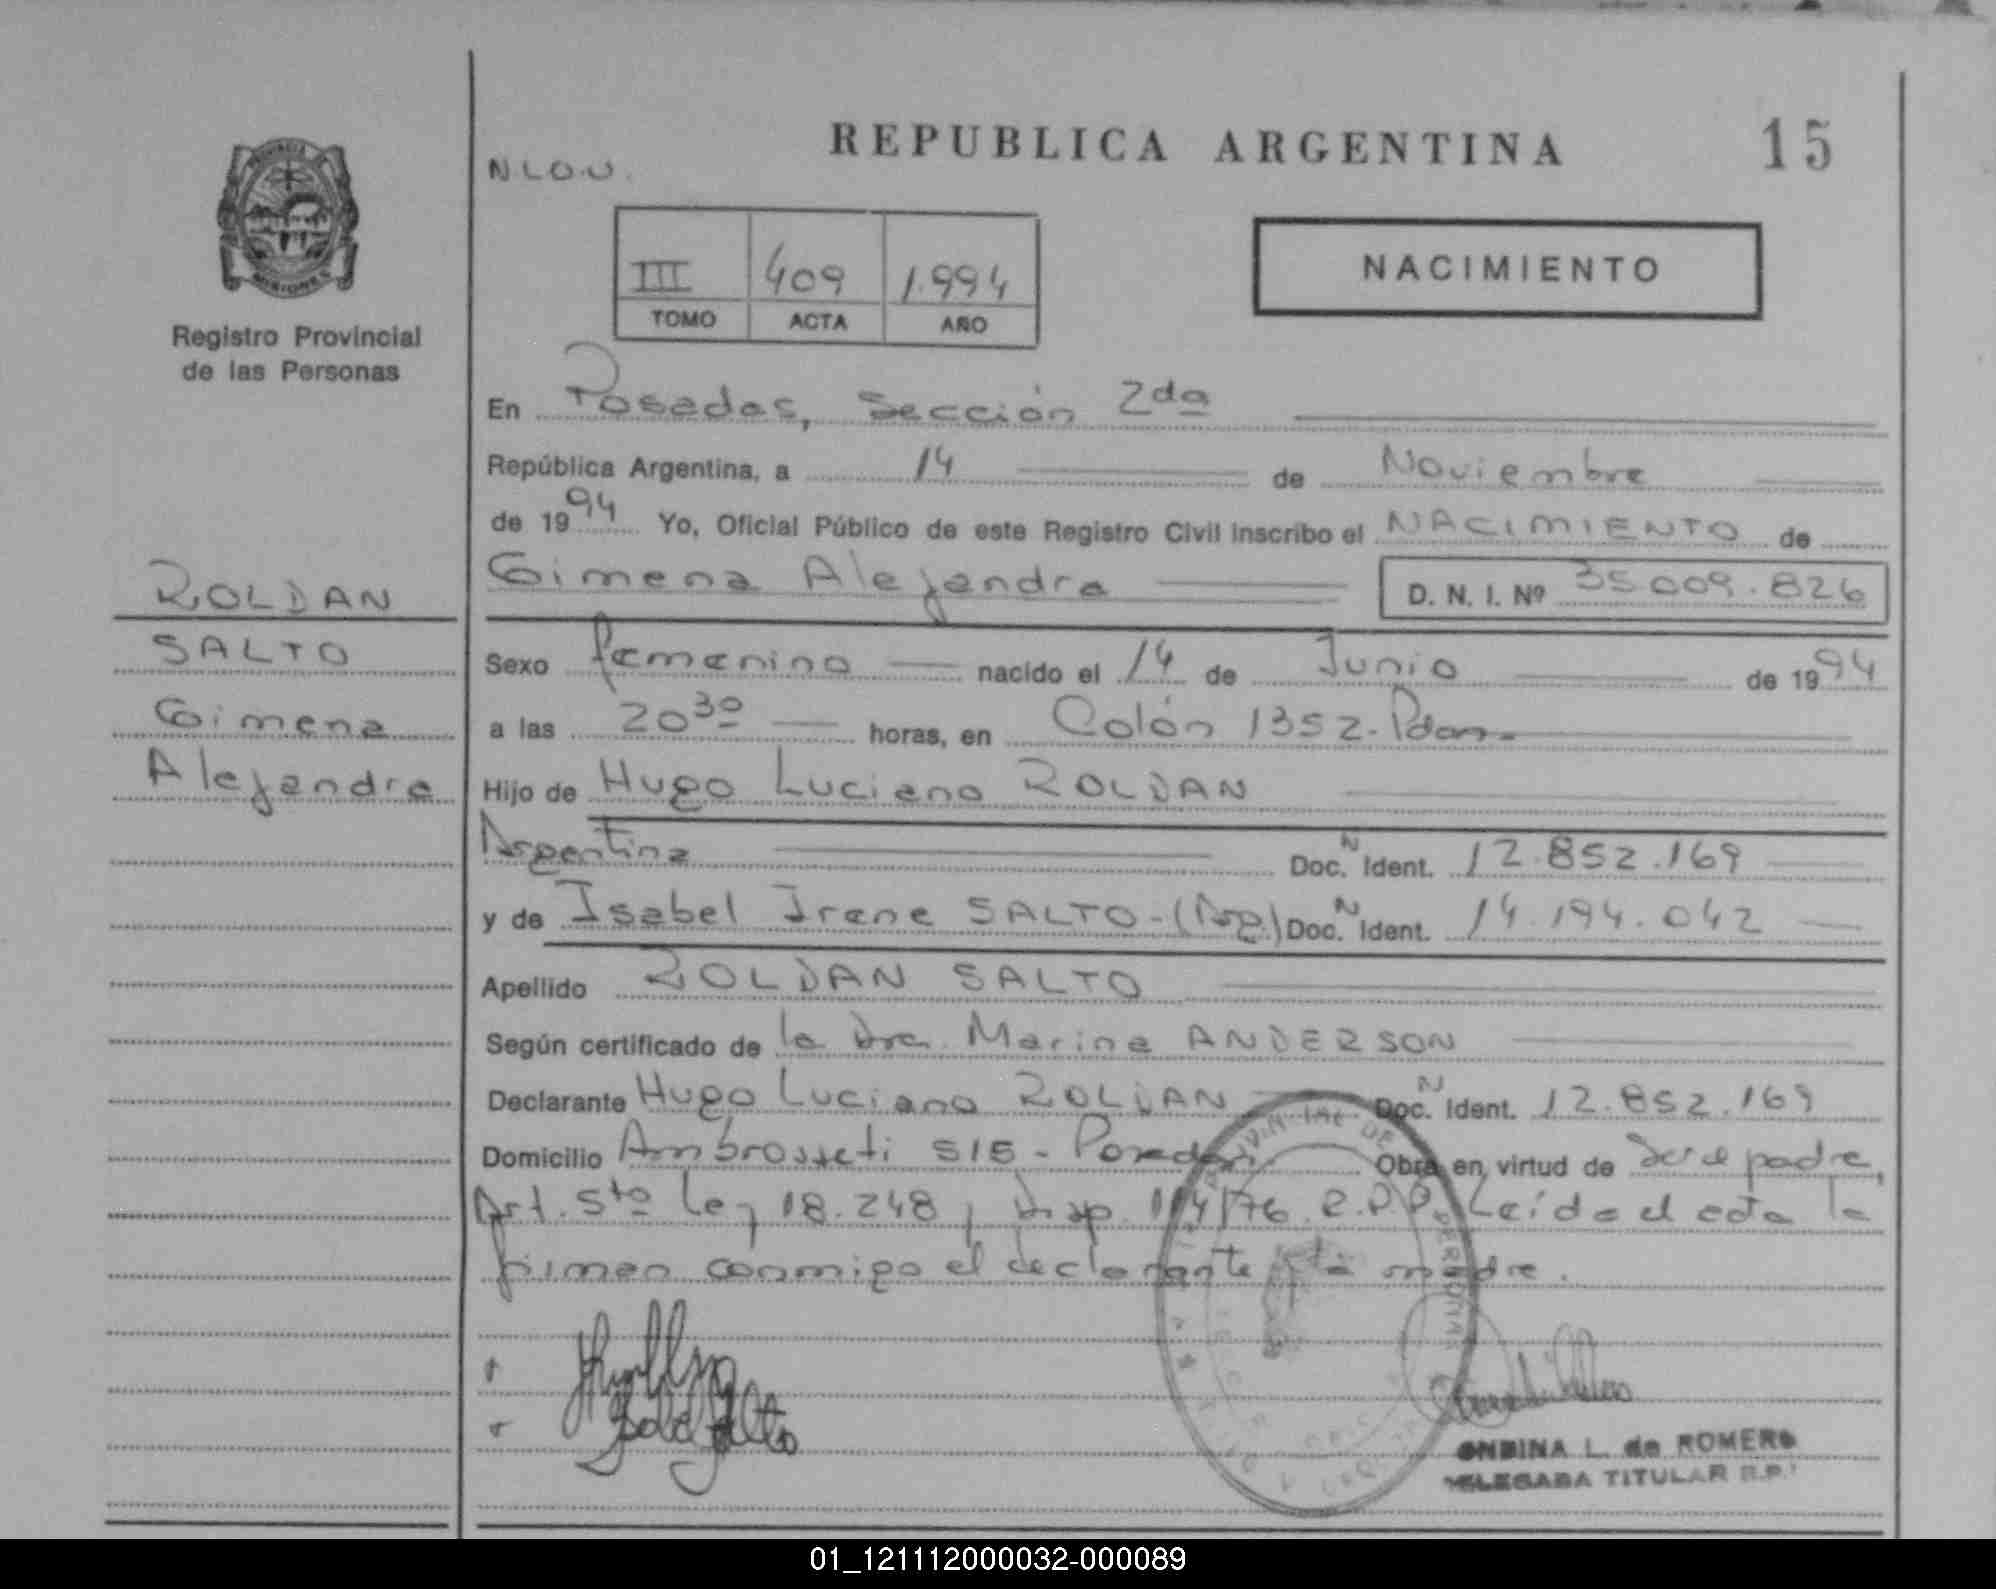 REPUBLICA ARGENTINA
15
N L O U.
III 409 1.994
TOMO ACTA AÑO
NACIMIENTO
PROVINCIA
MISIONES
Registro Provincial
de las Personas
ROLDAN
SALTO
Gimena
Alejandra
En Posadas, Sección 2da
República Argentina, a 14 de Noviembre
de 1994 Yo, Oficial Público de este Registro Civil inscribo el NACIMIENTO de
Gimena Alejandra D. N. I. Nº 35009.826
Sexo femenino nacido el 14 de Junio de 1994
a las 20 30 horas, en Colón 1352. Pdas.
Hijo de Hugo Luciano ROLDAN
Argentina Doc. N Ident. 12.852.169
y de Isabel Irene SALTO - (Arg.) Doc. N Ident. 14.194.042
Apellido ROLDAN SALTO
Según certificado de la Dra. Marina ANDERSON
Declarante Hugo Luciano ROLDAN Doc. N Ident. 12.852.169
Domicilio Ambrosseti 515 - Posadas. Obra en virtud de ser el padre,
Art. 5to ley 18.248 y Disp. 114/76 R.P.P. Leída el acta la
firman conmigo el declarante y la madre.
ONDINA L. de ROMERO
DELEGADA TITULAR R.P.
01_121112000032-000089